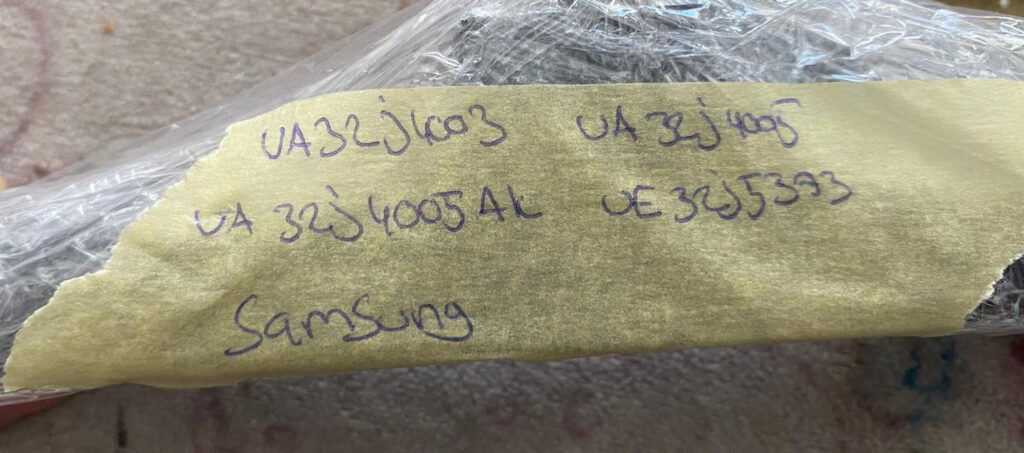 UA32j4003 UA32j4005
UA 32j4005Ak UE32j5373
Samsung